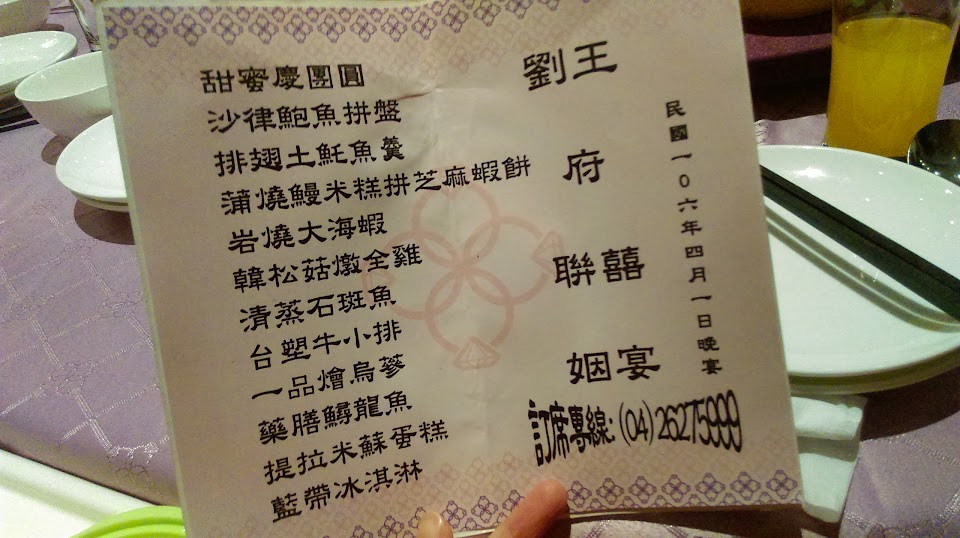 劉府囍宴
王府聯姻
民國一0六年四月一日晚宴
甜蜜慶團圓
沙律鮑魚拼盤
排翅土魠魚羹
蒲燒鰻米糕拼芝麻蝦餅
岩燒大海蝦
韓松菇燉全雞
清蒸石斑魚
台塑牛小排
一品燴烏蔘
藥膳鱘龍魚
提拉米蘇蛋糕
藍帶冰淇淋
訂席專線:(04)26275999